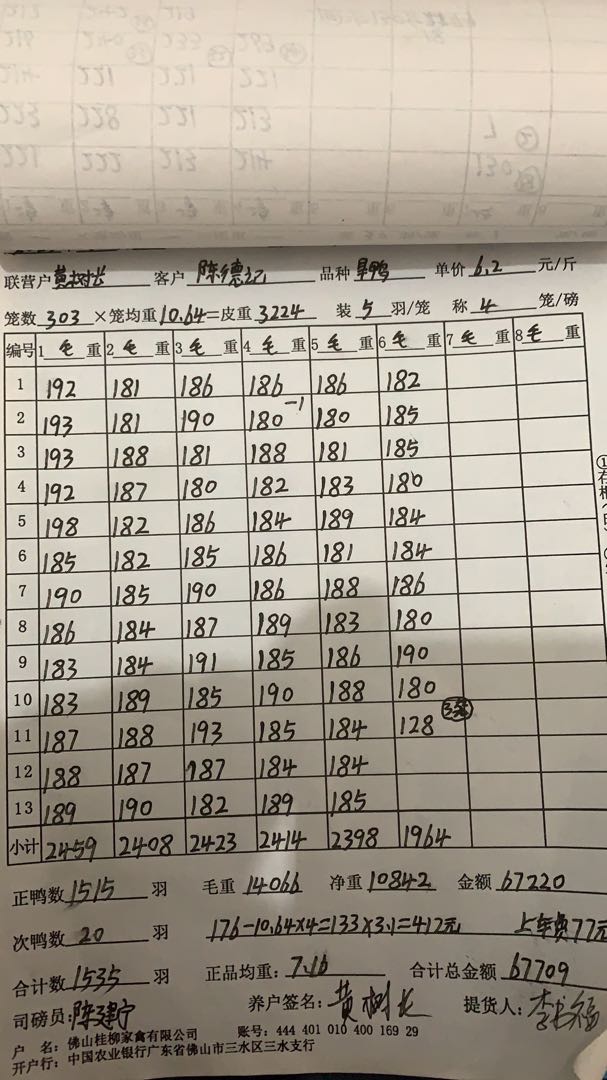 联营户 黄树长 客户 陈德记 品种 旱鸭 单价 6.2 元/斤
笼数 303 ×笼均重 10.64 =皮重 3224 装 5 羽/笼 称 4 笼/磅
编号 1 毛 重 2 毛 重 3 毛 重 4 毛 重 5 毛 重 6 毛 重 7 毛 重 8 毛 重
1 192 181 186 186 186 182
2 193 181 190 180 -1 180 185
3 193 188 181 188 181 185
4 192 187 180 182 183 180
5 198 182 186 184 189 184
6 185 182 185 186 181 184
7 190 185 190 186 188 186
8 186 184 187 189 183 180
9 183 184 191 185 186 190
10 183 189 185 190 188 180
11 187 188 193 185 184 128 3笼
12 188 187 187 184 184
13 189 190 182 189 185
小计 2459 2408 2423 2414 2398 1964
正鸭数 1515 羽 毛重 14066 净重 10842 金额 67220
次鸭数 20 羽 176-10.64×4=133×3.1=412元 上车费77元
合计数 1535 羽 正品均重: 7.16 合计总金额 67709
司磅员: 陈建宁 养户签名: 黄树长 提货人:
户 名: 佛山桂柳家禽有限公司 账号: 444 401 010 400 169 29
开户行: 中国农业银行广东省佛山市三水区三水支行